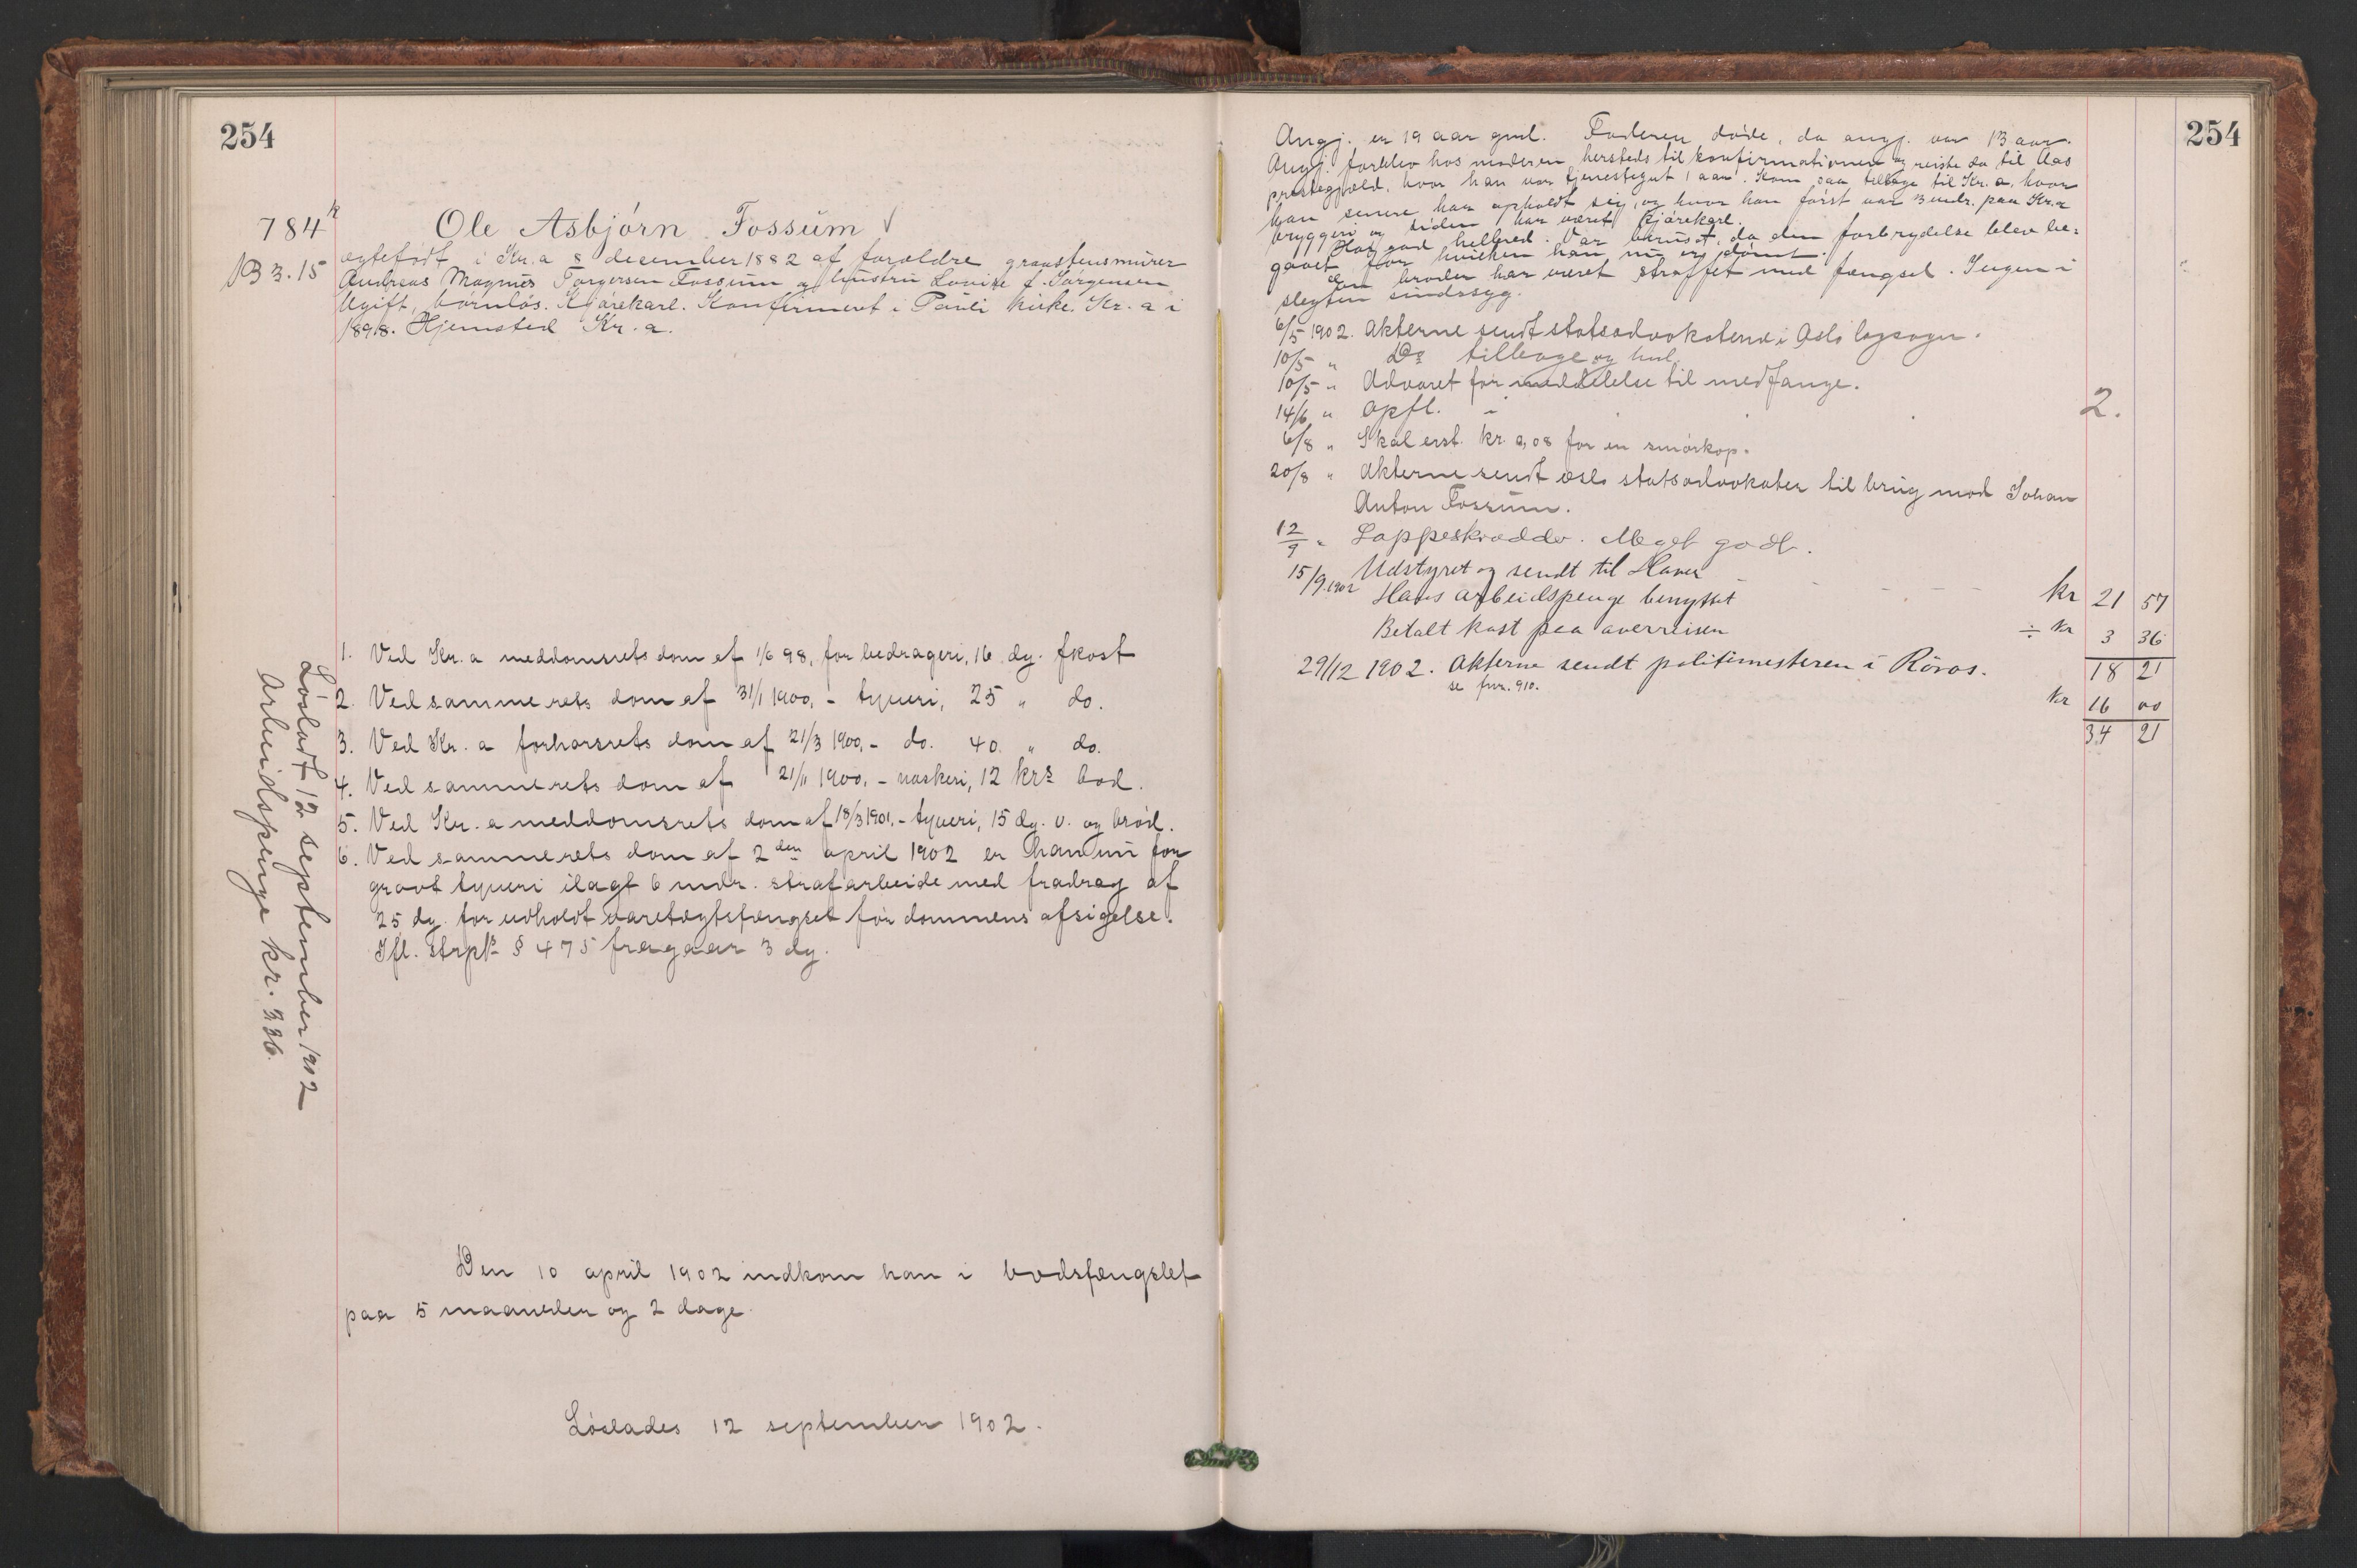 254
784
B 3.15
Ole Asbjørn Fossum
ægtefødt i Kr.a 8 december 1882 af forældre graastensmurer
Andreas Magnus Torgersen Fossum og hustru Lovise f. Jørgensen
Ugift, børnløs. Kjørekarl. Konfirmeret i Pauli kirke Kr.a i
1898. Hjemsted Kr.a.
1. Ved Kr.a meddomsrets dom af 1/6 98, for bedrageri, 16 dg. fkost
2. Ved sammerets dom af 31/1 1900, - tyveri, 25 " do.
3. Ved Kr.a forhørsrets dom af 21/3 1900, - do. 40 " do.
4. Ved sammerets dom af 21/11 1900, - naskeri, 12 krs bod.
5. Ved Kr.a meddomsrets dom af 18/3 1901, - tyveri, 15 dg. v. og brød.
6. Ved sammerets dom af 2den april 1902 er han nu for
grovt tyveri ilagt 6 mdr. strafarbeide med fradrag af
25 dg. for udholdt varetægtsfængsel før dommens afsigelse.
Ifl. strpl § 475 fragaar 3 dg.
Løsladt 12 september 1902
Arbeidspenge kr. 3.36.
Den 10 april 1902 indkom han i bodsfængslet
paa 5 maaneder og 2 dage.
Løslades 12 september 1902.
254
Angj. er 19 aar gml. Faderen døde, da angj. var 13 aar.
Angj. forblev hos moderen hersteds til konfirmationen og reiste da til Aas
prestegjæld, hvor han var tjenestegut 1 aar. Kom saa tilbage til Kr.a, hvor
han senere har opholdt sig, og hvor han først var 3 mdr. paa Kr.a
bryggeri og siden har været kjørekarl.
Har god helbred. Var beruset, da den forbrydelse blev be-
gaaet for hvilken han nu er dømt.
En broder har været straffet med fængsel. Ingen i
slegten sindssyg.
6/5 1902. Akterne sendt statsadvokaterne i Oslo lagsogn.
10/5 " Do tilbage og hul.
10/5 " Advaret for meddelelse til medfange.
14/6 " Opfl. i 2.
6/8 " Skal erst. kr. 0,08 for en smørkop.
20/8 " Akterne sendt Oslo statsadvokater til brug mod Johan
Anton Fossum.
12/9 " Lappeskrædder. Meget godt.
15/9 1902 Udstyret og sendt til
Hans arbeidspenge benyttet kr 21 57
Betalt kost paa overreisen ÷ kr 3 36
18 21
29/12 1902. Akterne sendt politimesteren i Röros.
se fnr. 910.
kr 16 00
34 21